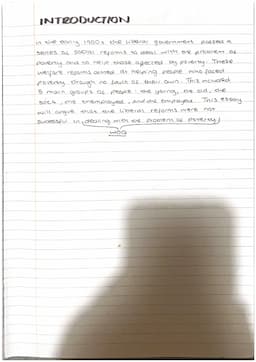 INTRODUCTION
In the early 1900s the Liberal government passed a
series of social reforms to deal with the problem of
poverty and to help those affected by poverty. These
welfare reforms aimed at helping people who faced
poverty through no fault of their own. This included
5 main groups of people: the young, the old, the
sick, the unemployed, and the employed. This essay
will argue that the Liberal reforms were not
successful in dealing with the problem of poverty